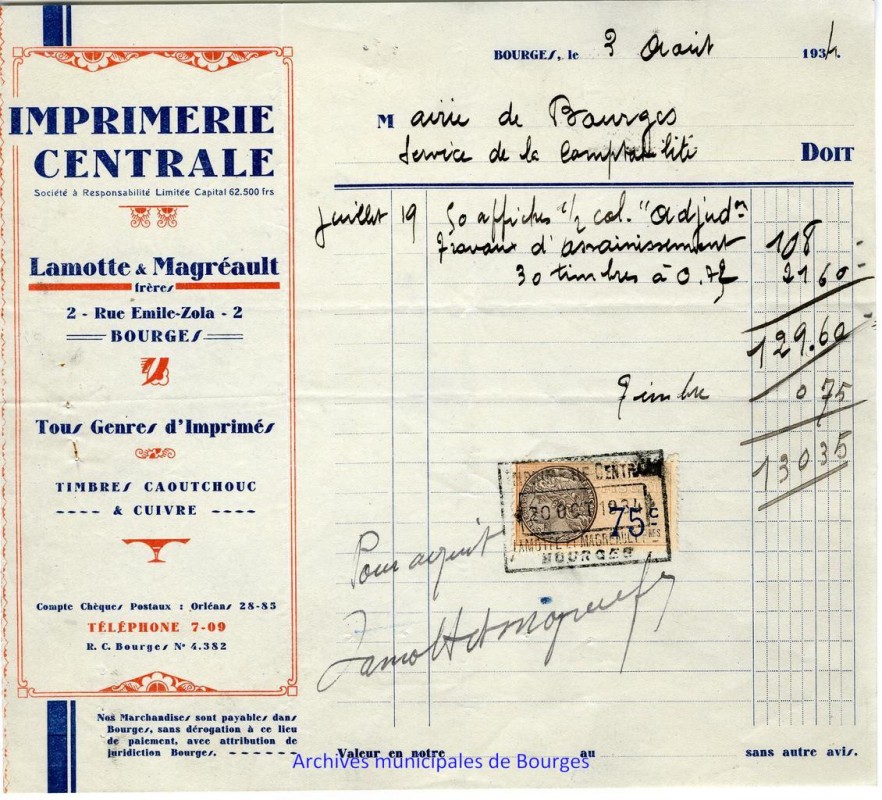 IMPRIMERIE
CENTRALE
Société à Responsabilité Limitée Capital 62.500 frs
Lamotte & Magréault
frères
2 - Rue Emile-Zola - 2
BOURGES
Tous Genres d'Imprimés
TIMBRES CAOUTCHOUC
---- & CUIVRE ----
Compte Chèques Postaux : Orléans 28-85
TÉLÉPHONE 7-09
R. C. Bourges N° 4.382
Nos Marchandises sont payables dans
Bourges, sans dérogation à ce lieu
de paiement, avec attribution de
juridiction Bourges. - - - - - -
BOURGES, le 3 Août 1934
Mairie de Bourges
Service de la Comptabilité DOIT
Juillet 19 50 affiches 1/2 col. "Adjudon
Travaux d'assainissement 108 -
30 timbres à 0.72 21 60
129.60
Timbre 0 75
130 35
IMPRIMERIE CENTRALE
30 OCT 1934
75 c
LAMOTTE ET MAGRÉAULT FRES
BOURGES
Pour acquit
Valeur en notre au sans autre avis.
Archives municipales de Bourges